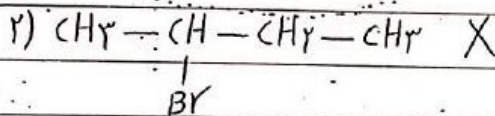 ۲) CH۳ — CH — CH۲ — CH۳ X
Br